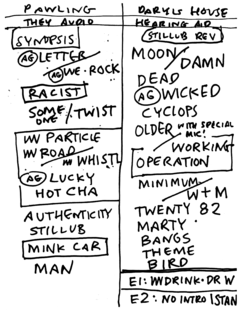 PAWLING
THEY AUDIO
SYNOPSIS
AG LETTER
AG WE·ROCK
RACIST
SOME ONE / TWIST
W PARTICLE
W ROAD
W WHISTL
AG LUCKY
HOT CHA
AUTHENTICITY
STILLUB
MINK CAR
MAN
DARYLS HOUSE
HEARING AID
STILLUB REV
MOON / DAMN
DEAD
AG WICKED
CYCLOPS
OLDER WITH SPECIAL MIC!
WORKING
OPERATION
MINIMUM
W+M
TWENTY 82
MARTY
BANGS
THEME
BIRD
E1: W DRINK·DR W
E2: NO INTRO ISTAN